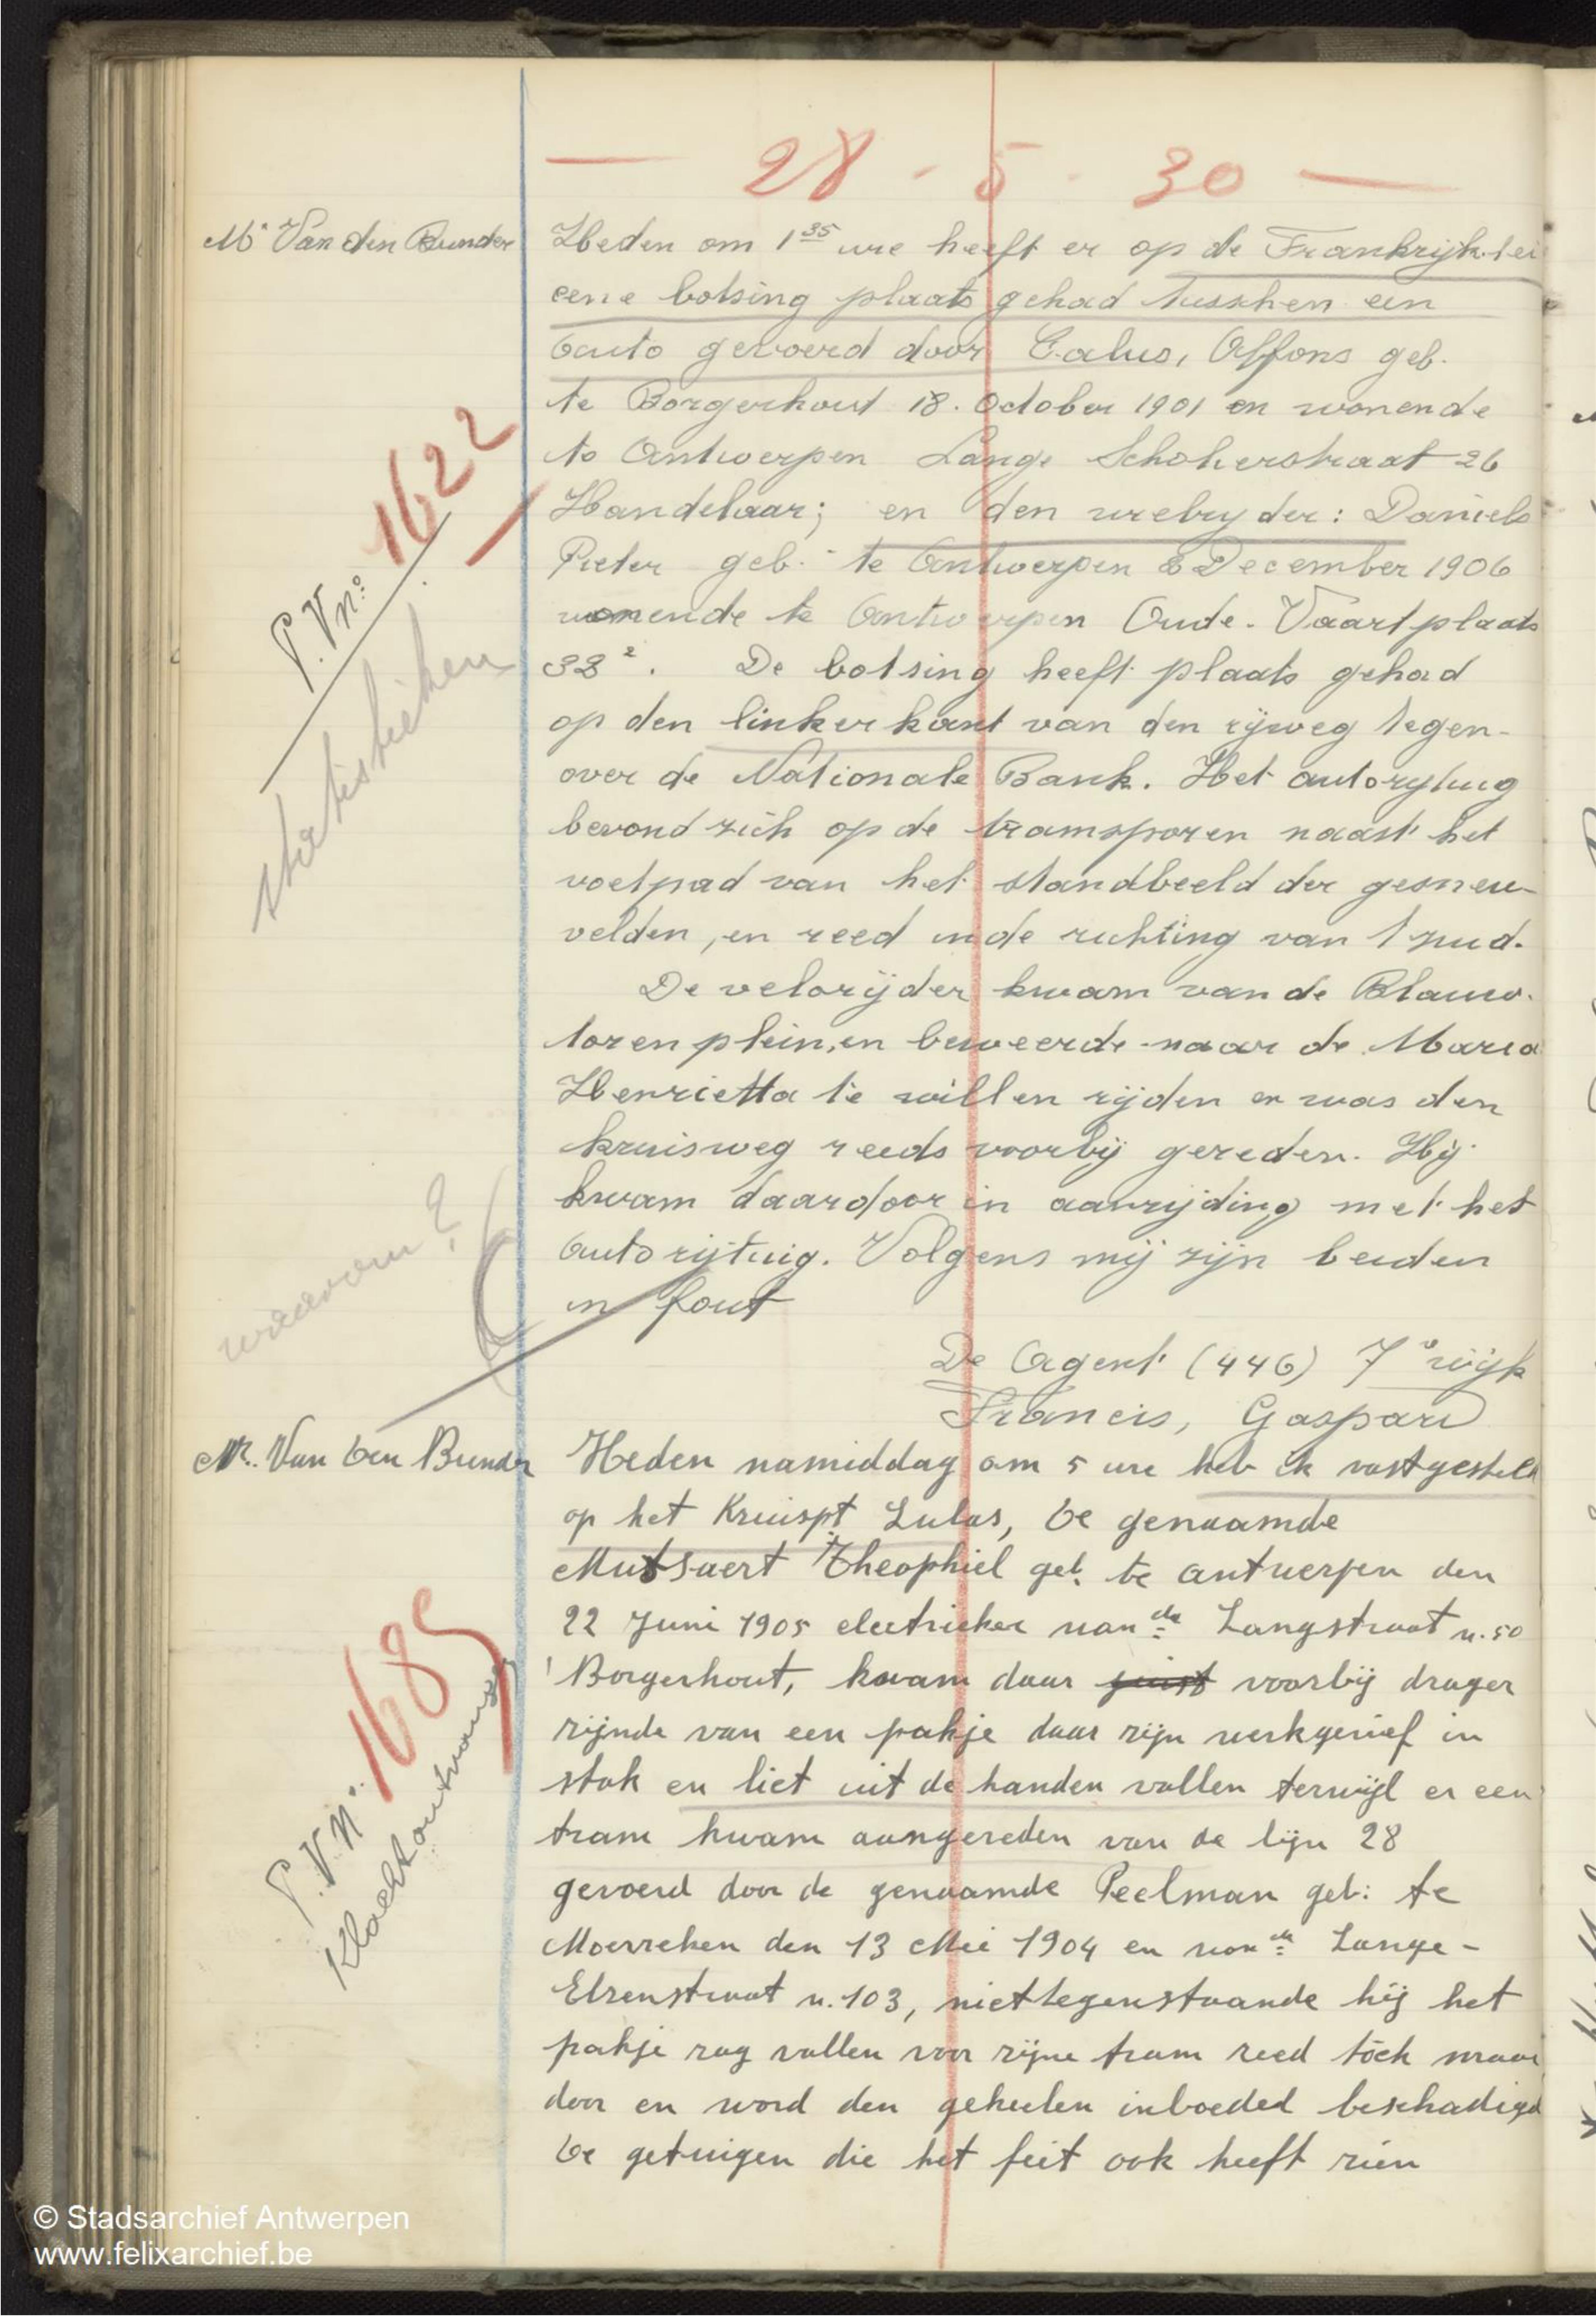 — 28 - 5 - 30 —
Mr Van den Bunder
Heden om 1 35 ure heeft er op de Frankrijk-lei
eene botsing plaats gehad tusschen een
auto gevoerd door Calus, Alfons geb.
te Borgerhout 18. October 1901 en wonende
te Antwerpen Lange Scholierstraat 26
Handelaar; en den wielryder: Daniels
Pieter geb. te Antwerpen 8 December 1906
wonende te Antwerpen Oude-Vaartplaats
38 2. De botsing heeft plaats gehad
op den linkerkant van den rijweg tegen-
over de Nationale Bank. Het autorytuig
bevond zich op de tramsporen naast het
voetpad van het standbeeld der gesneu-
velden, en reed in de richting van 't zuid.
De velorijder kwam van de Blauw-
torenplein, en beweerde naar de Maria
Henrietta te willen rijden en was den
kruisweg reeds voorbij gereden. Hij
kwam daardoor in aanrijding met het
autorijtuig. Volgens mij zijn beiden
in fout
De Agent (446) 7e wijk
Francis, Gaspard
P.V. no: 1622
statistieken
waarom?
Mr. Van den Bunder
Heden namiddag om 5 ure heb ik vastgesteld
op het Kruispt, de genaamde
Mutsaert Theophiel geb. te antwerpen den
22 Juni 1905 electrieker won de Langstraat n. 50
Borgerhout, kwam daar juist voorbij drager
zijnde van een pakje daar zijn werkgerief in
stak en liet uit de handen vallen terwijl er een
tram kwam aangereden van de lijn 28
gevoerd door de genaamde Peelman geb: te
den 13 Mei 1904 en won de Lange-
Elzenstraat n. 103, niettegenstaande hij het
pakje zag vallen voor zijne tram reed toch maar
door en word den geheelen inboedel beschadigd
De getuigen die het feit ook heeft zien
P.V. No. 1685
Klacht ontvangen
© Stadsarchief Antwerpen
www.felixarchief.be